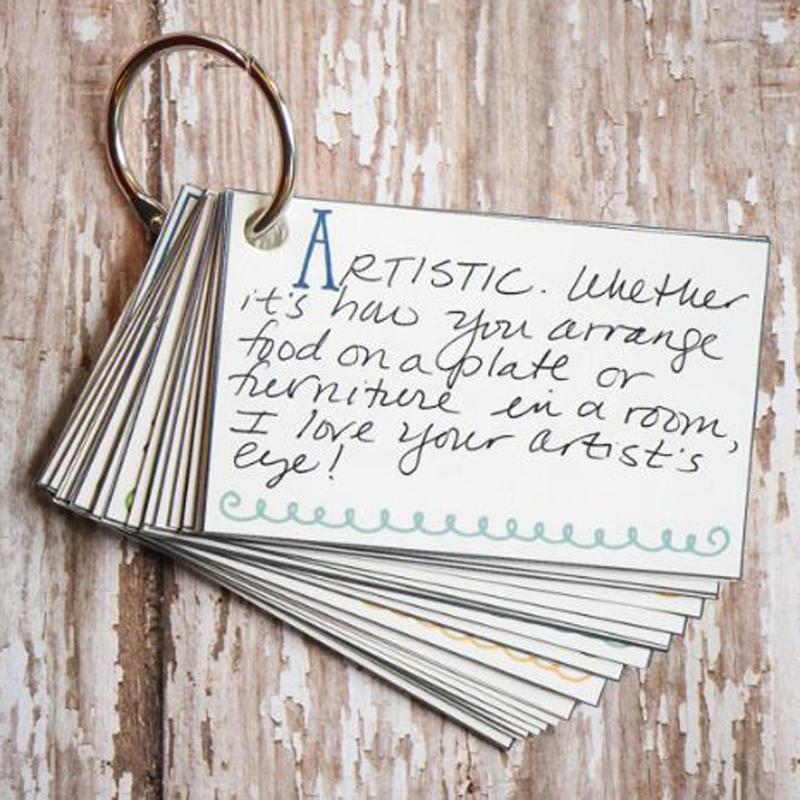 ARTISTIC. Whether
it's how you arrange
food on a plate or
furniture in a room,
I love your artist's
eye!